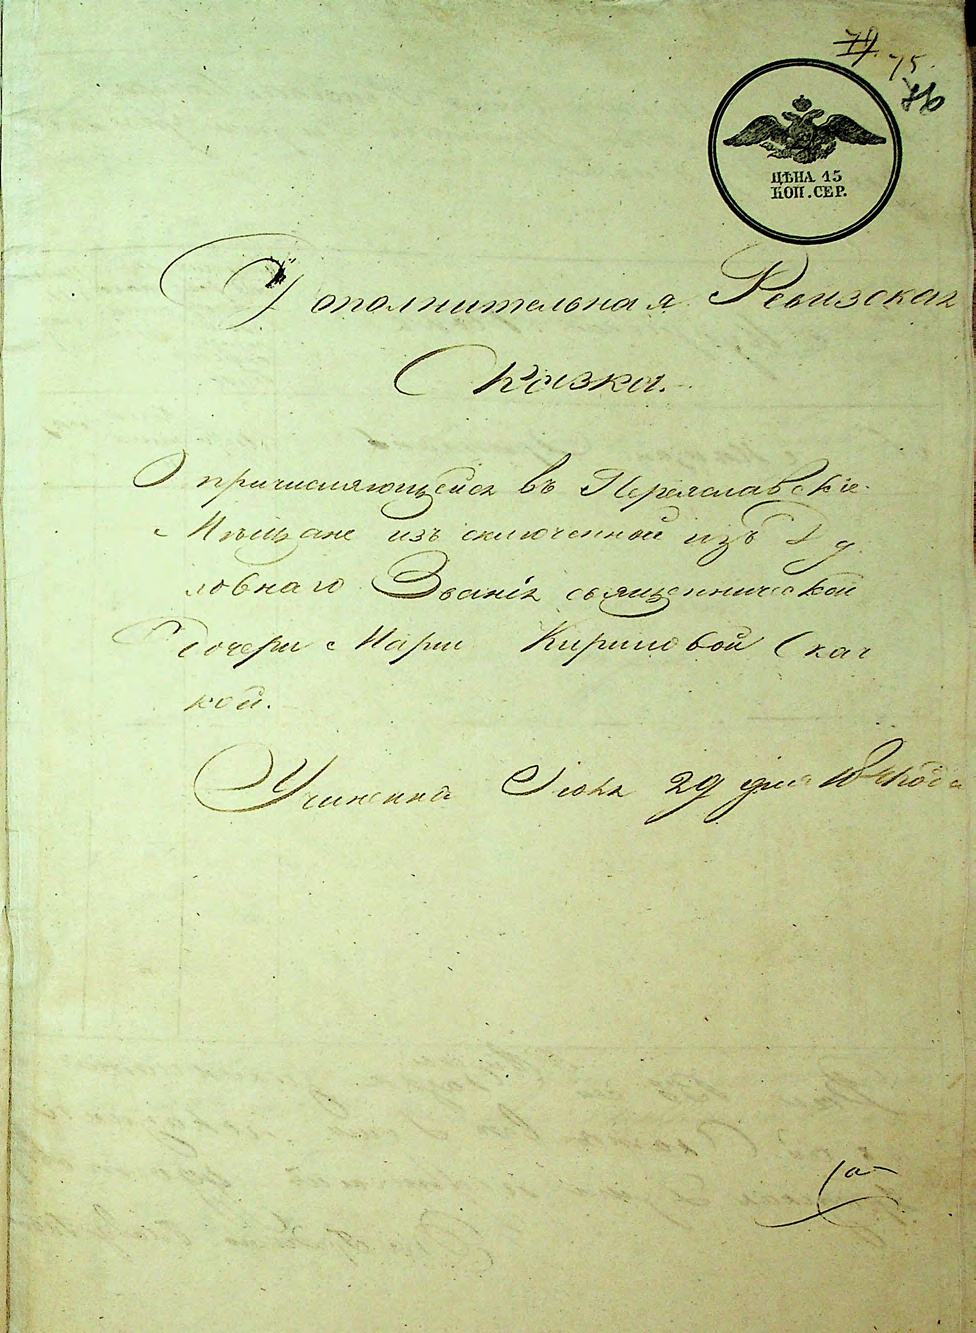 74. 75.
76
ЦѢНА 15
КОП. СЕР.
Дополнительная Ревизская
Сказка.
О причисляющейся въ Переяславскіе
Мѣщане изъ сключенной изъ Ду
ховнаго Званія священнической
Дочери Марιи Кириловой Скач
кой.
Учинена Іюня 29 дня года